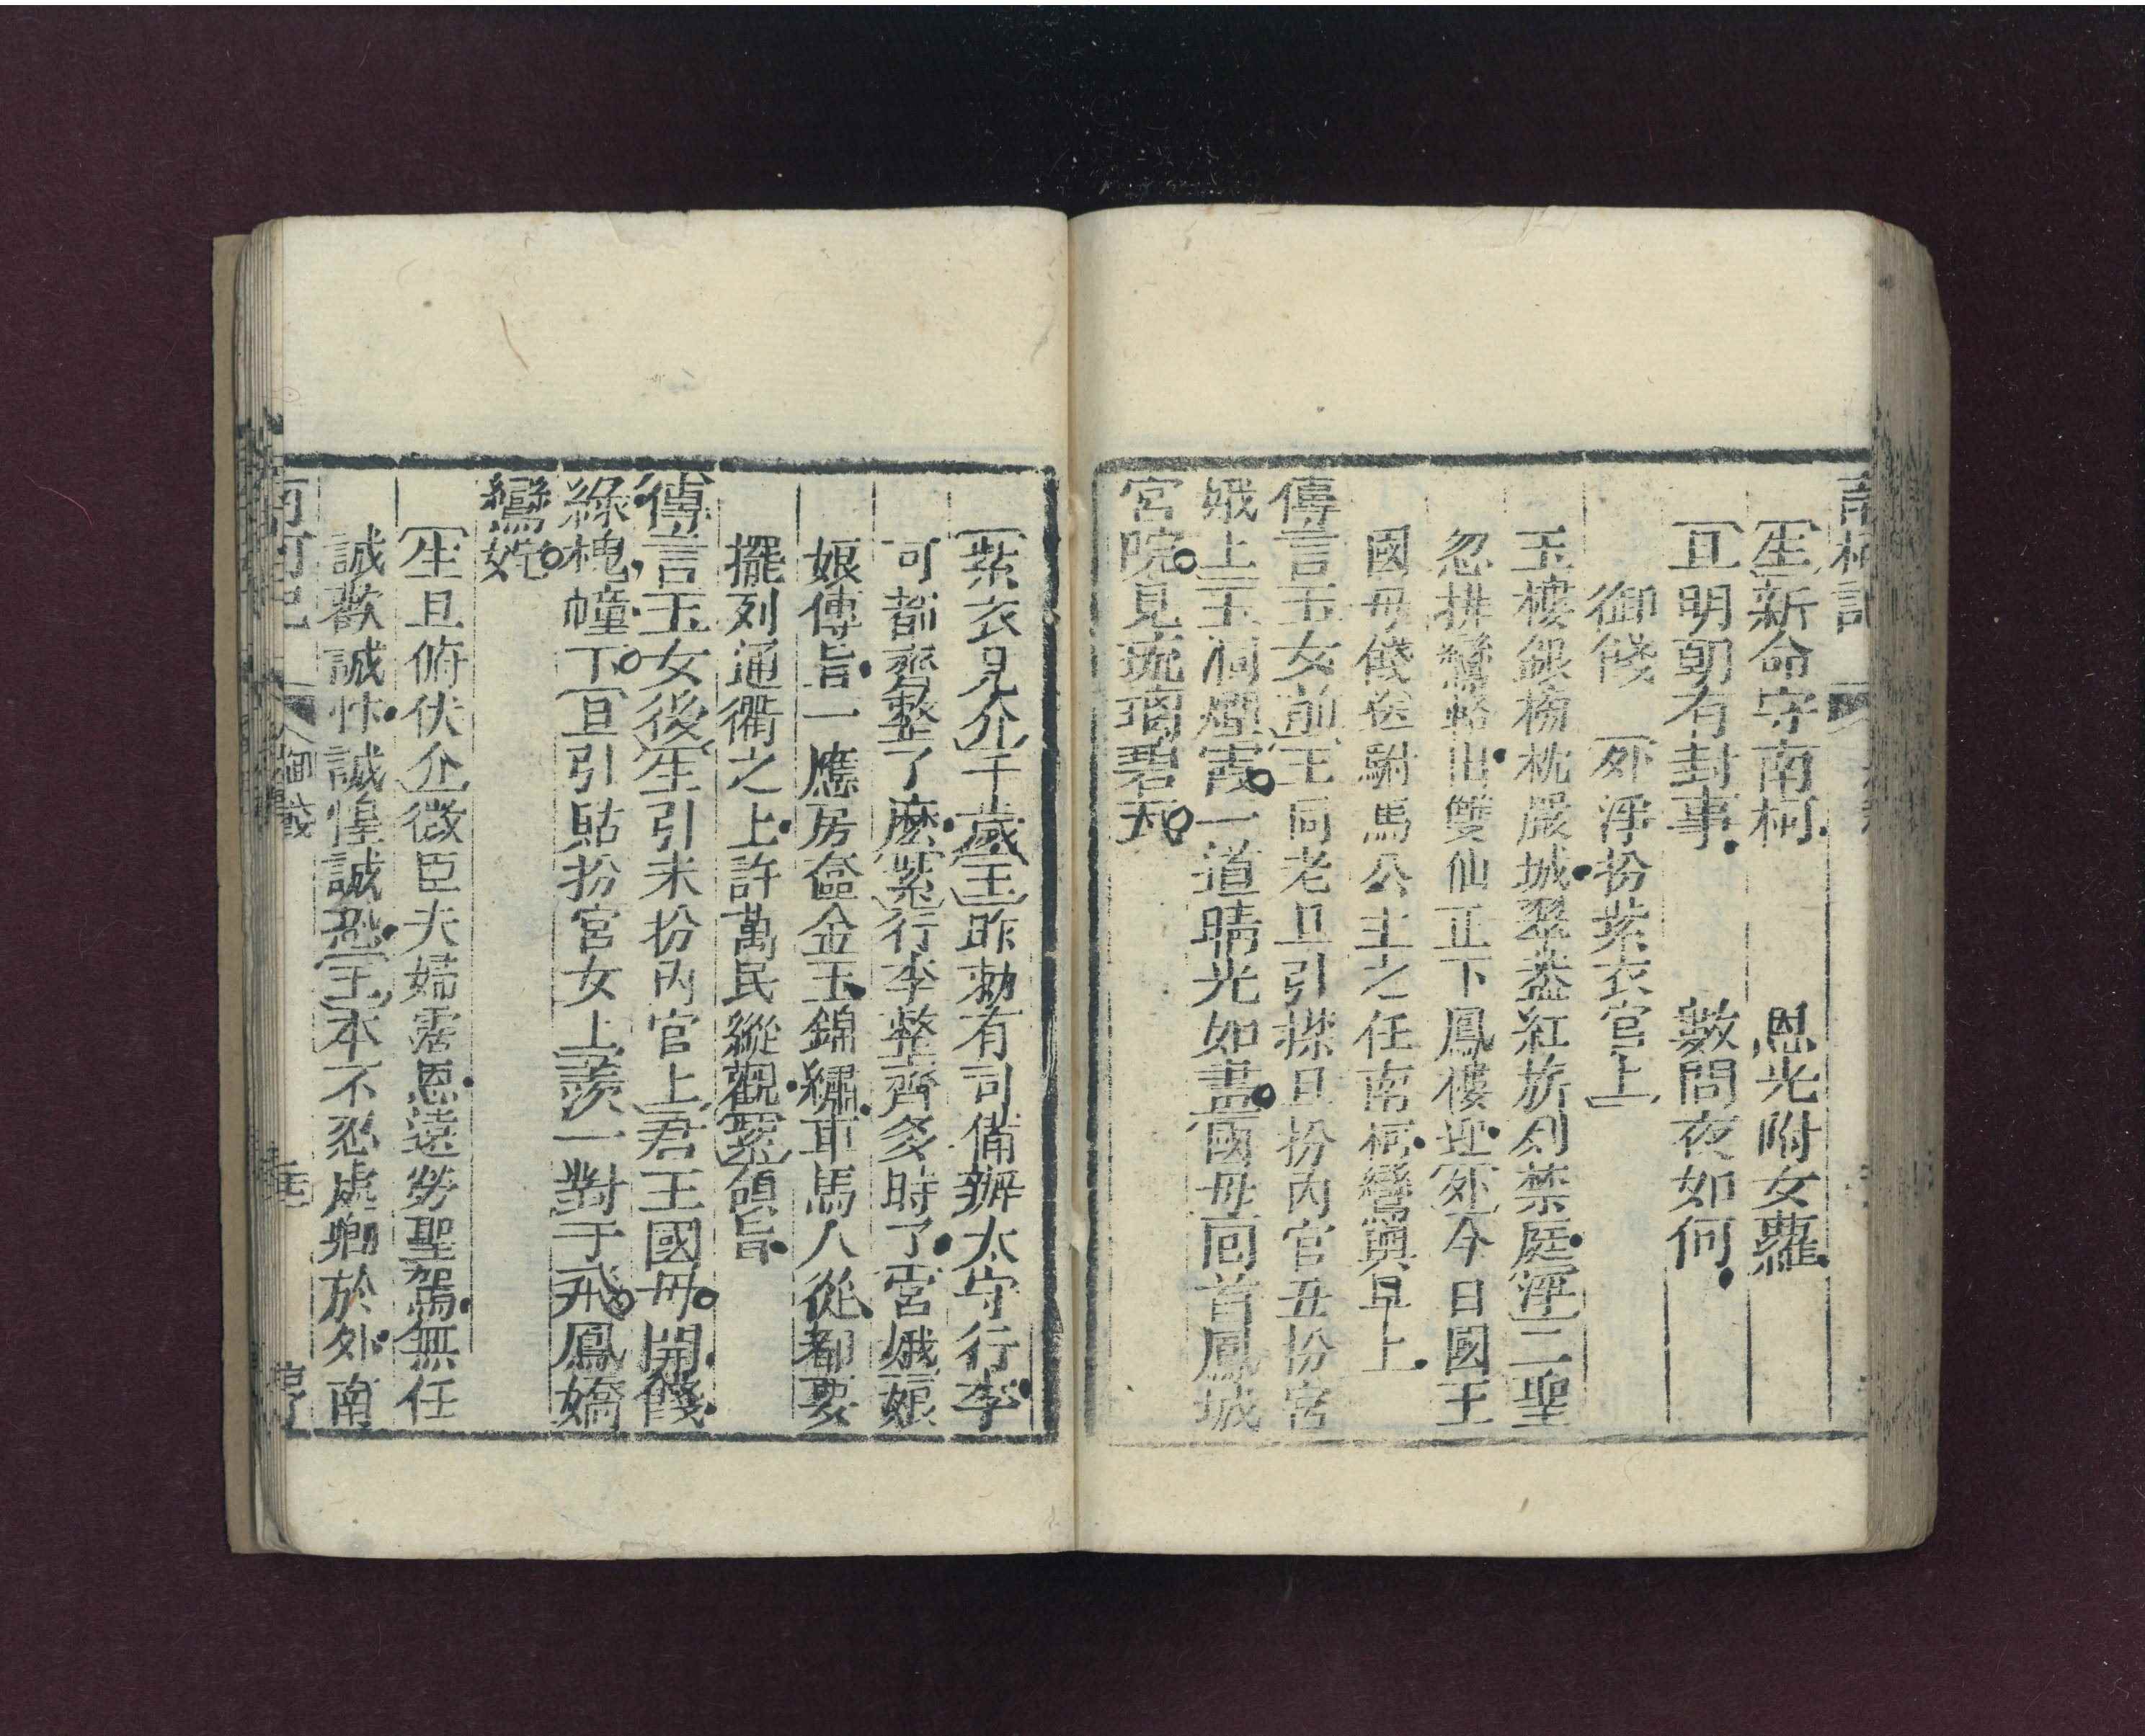 南柯記
生新命守南柯 恩光附女蘿
旦明朝有封事 數問夜如何
御餞 外淨扮紫衣官上
玉樓銀榜枕嚴城翠葢紅旂列禁庭淨二聖
忽排鸞輅出雙仙正下鳳樓迎外今日國王
國母餞送駙馬公主之任南柯鸞輿早上
傳言玉女前王同老旦引襍旦扮內官丑扮宮
娥上玉洞烟霞一道晴光如畫國母囘首鳳城
宮院見琉璃碧瓦
紫衣見介千歲王昨勑有司備辦太守行李
可都齊整了麽紫行李整齊多時了宮娥娘
娘傳旨一應房奩金玉錦繡車馬人從都要
擺列通衢之上許萬民縱觀衆領旨
傳言玉女後生引末扮內官上君王國母開餞
綠槐幢下旦引貼扮宮女上羨一對于飛鳳嬌
鸞姹
生旦俯伏介微臣夫婦霑恩遠勞聖駕無任
誠歡誠忭誠惶誠恐王本不忍處卿於外南
南柯記 御餞